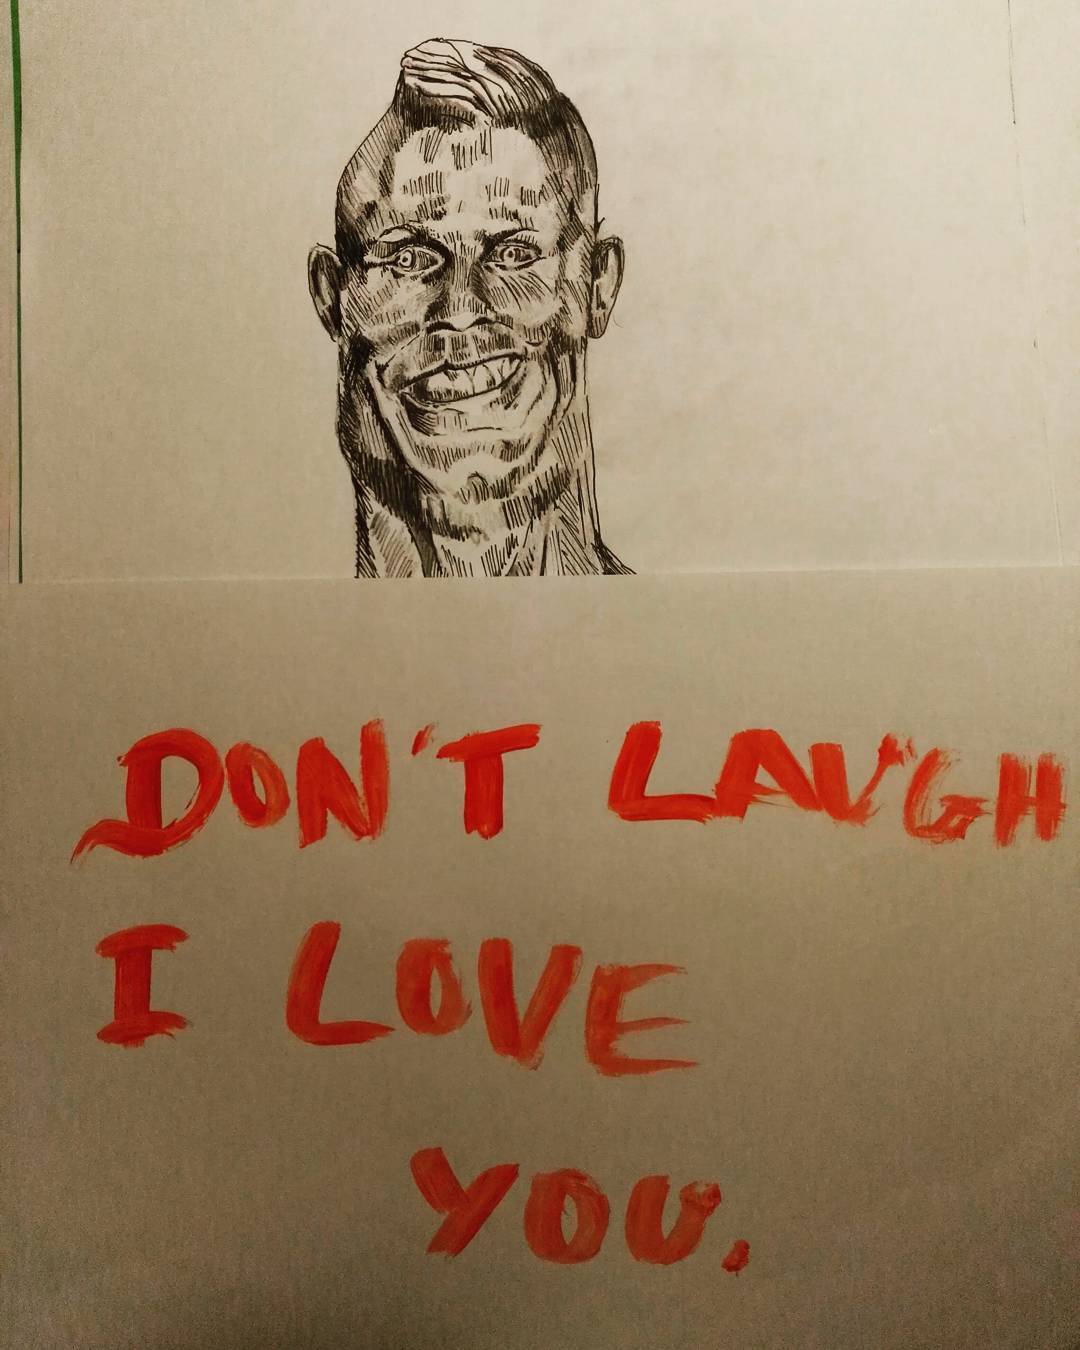 DON'T LAUGH
I LOVE
YOU.